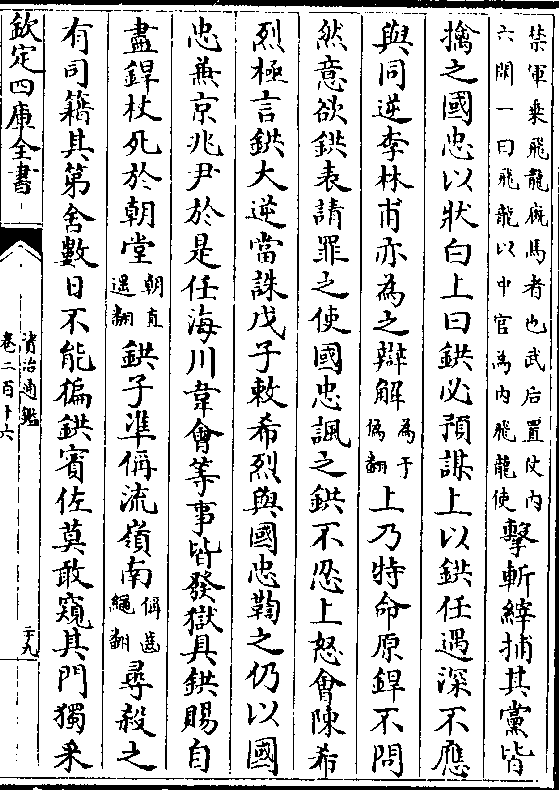 禁軍乗飛龍廐馬者也武后置仗内
六閑一曰飛龍以中官為内飛龍使
擊斬縡捕其黨皆
擒之國忠以狀白上曰鉷必預謀上以鉷任遇深不應
與同逆李林甫亦為之辯解
為于
偽翻
上乃特命原銲不問
然意欲鉷表請罪之使國忠諷之鉷不忍上怒會陳希
烈極言鉷大逆當誅戊子敕希烈與國忠鞫之仍以國
忠兼京兆尹於是任海川韋會等事皆發獄具鉷賜自
盡銲杖死於朝堂
朝直
遥翻
鉷子凖偁流嶺南
偁齒
繩翻
尋殺之
有司籍其第舍數日不能徧鉷賓佐莫敢窺其門獨采
欽定四庫全書
資治通鑑
卷二百十六
二十九